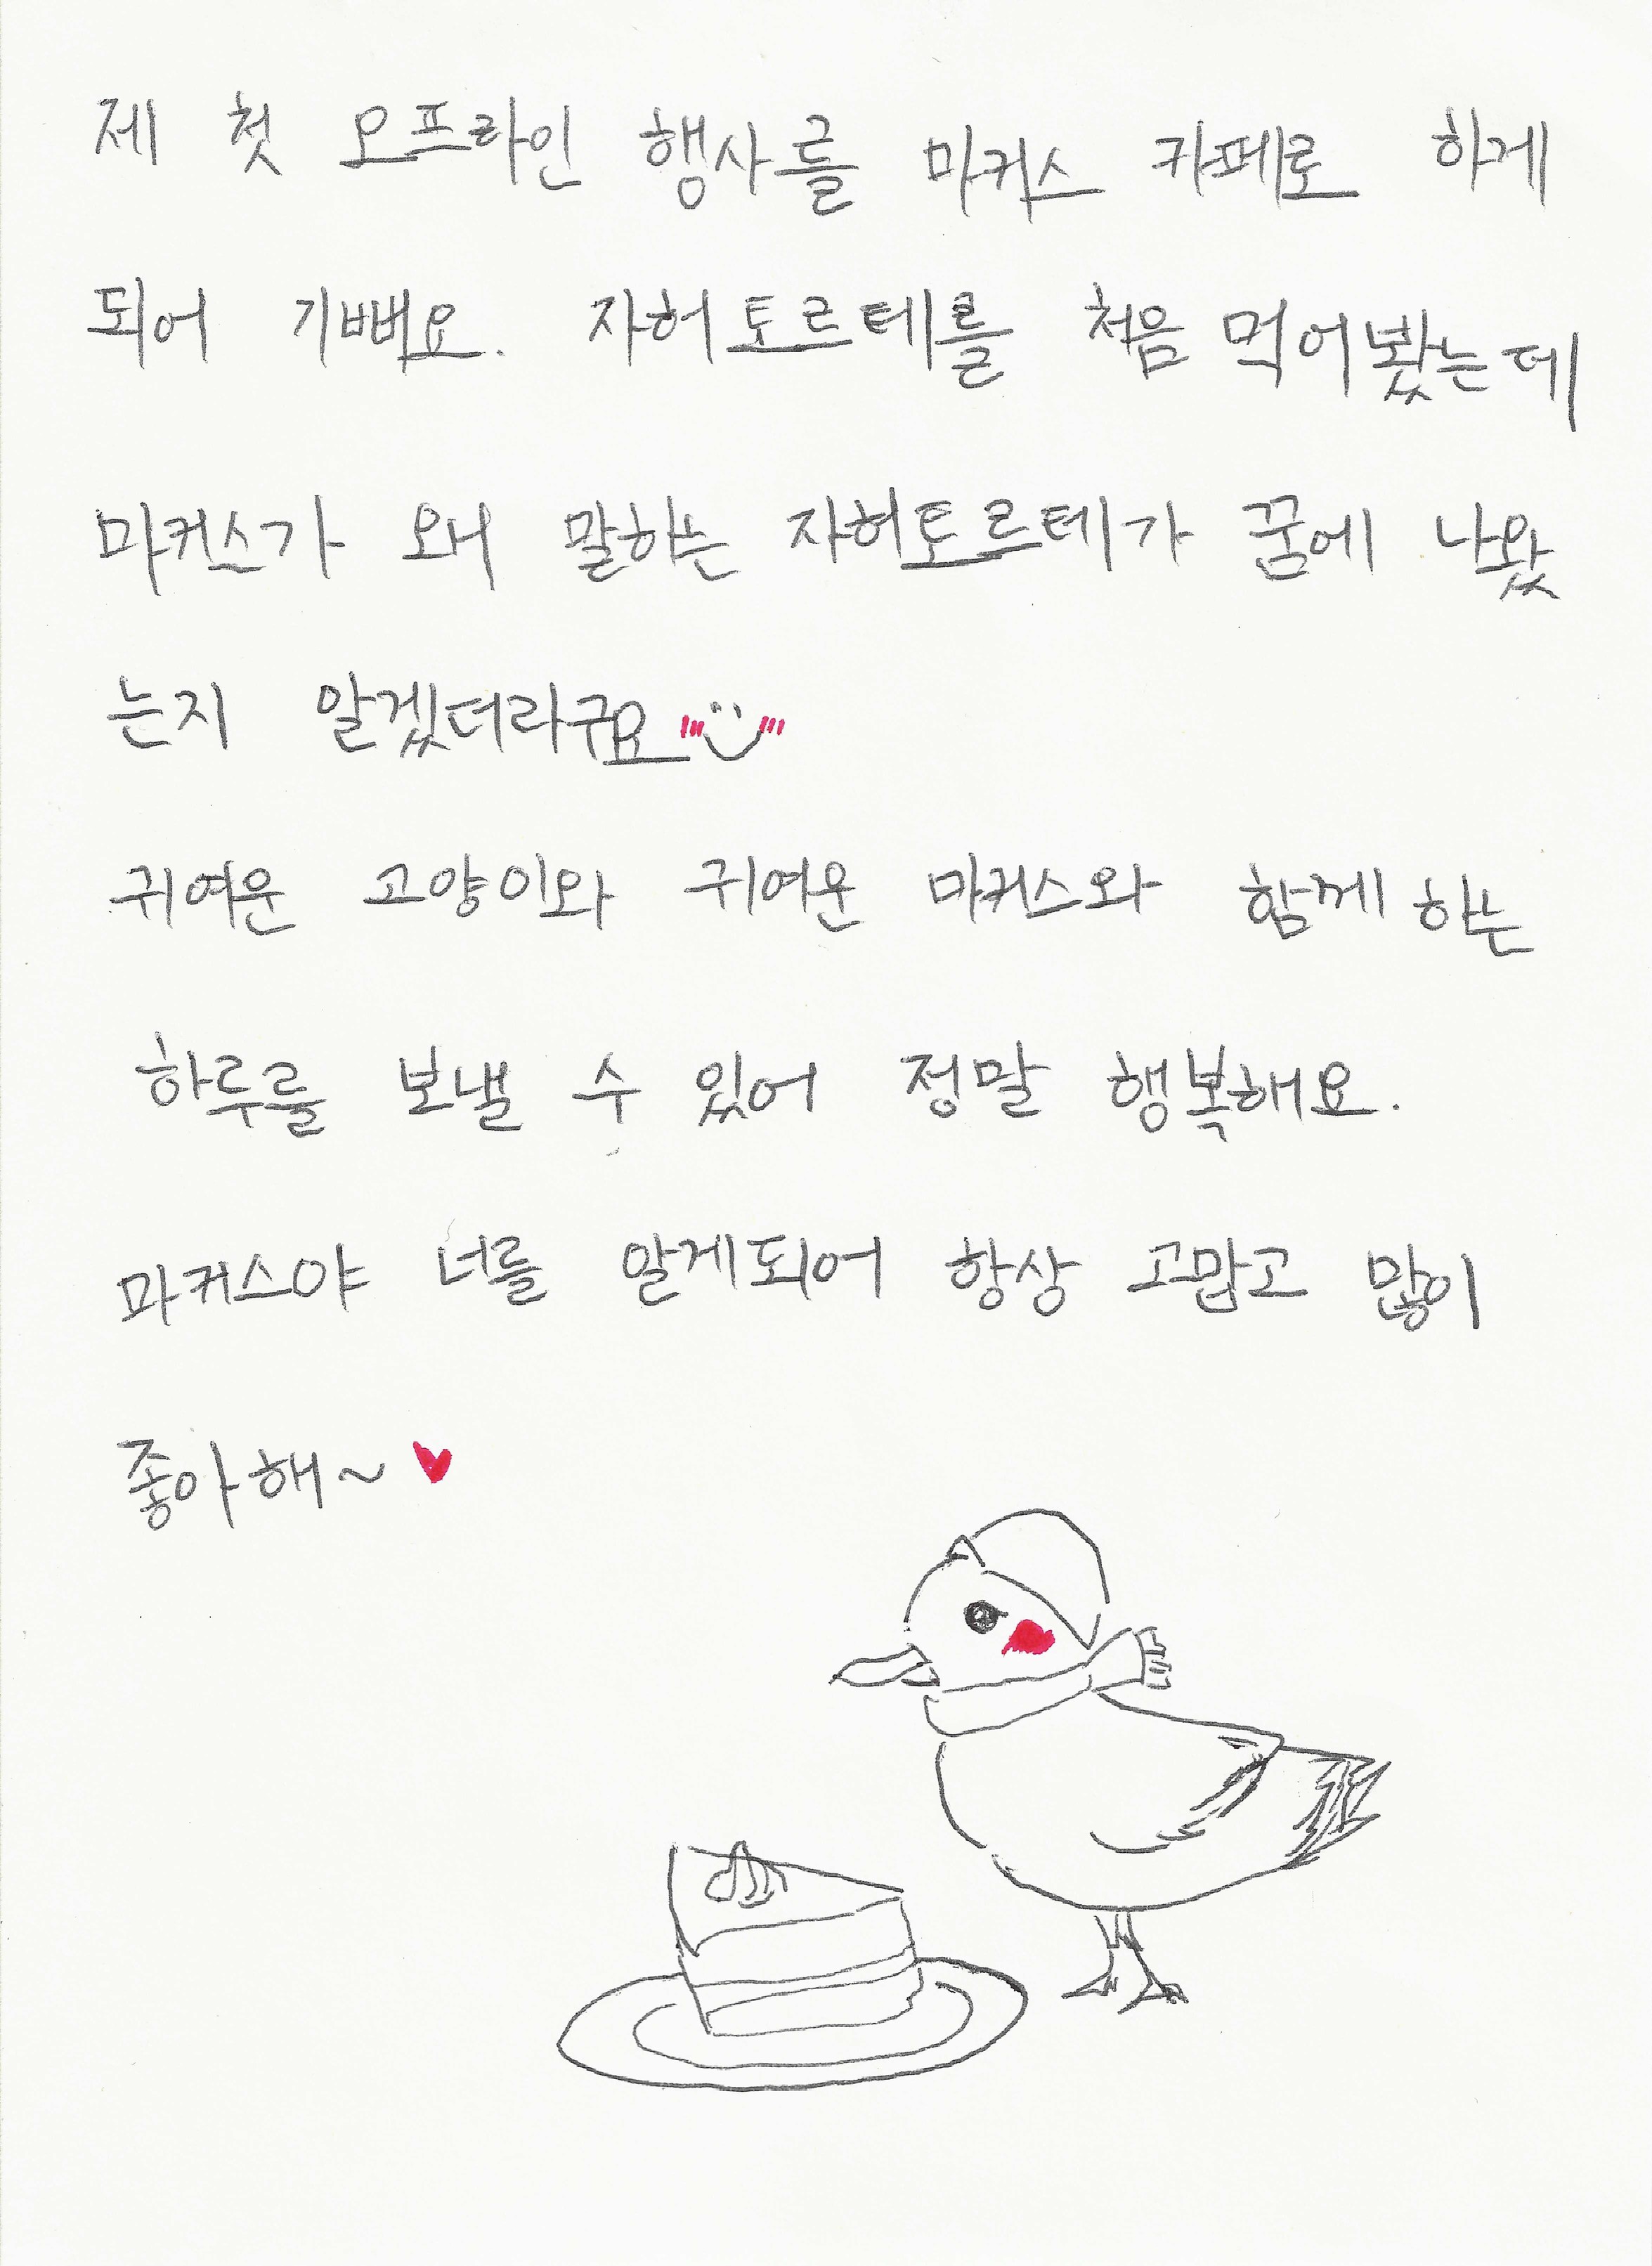 제 첫 오프라인 행사를 마커스 카페로 하게
되어 기뻐요. 자허토르테를 처음 먹어봤는데
마커스가 왜 말하는 자허토르테가 꿈에 나왔
는지 알겠더라구요
귀여운 고양이와 귀여운 마커스와 함께 하는
하루를 보낼 수 있어 정말 행복해요.
마커스야 너를 알게되어 항상 고맙고 많이
좋아해~ ♥